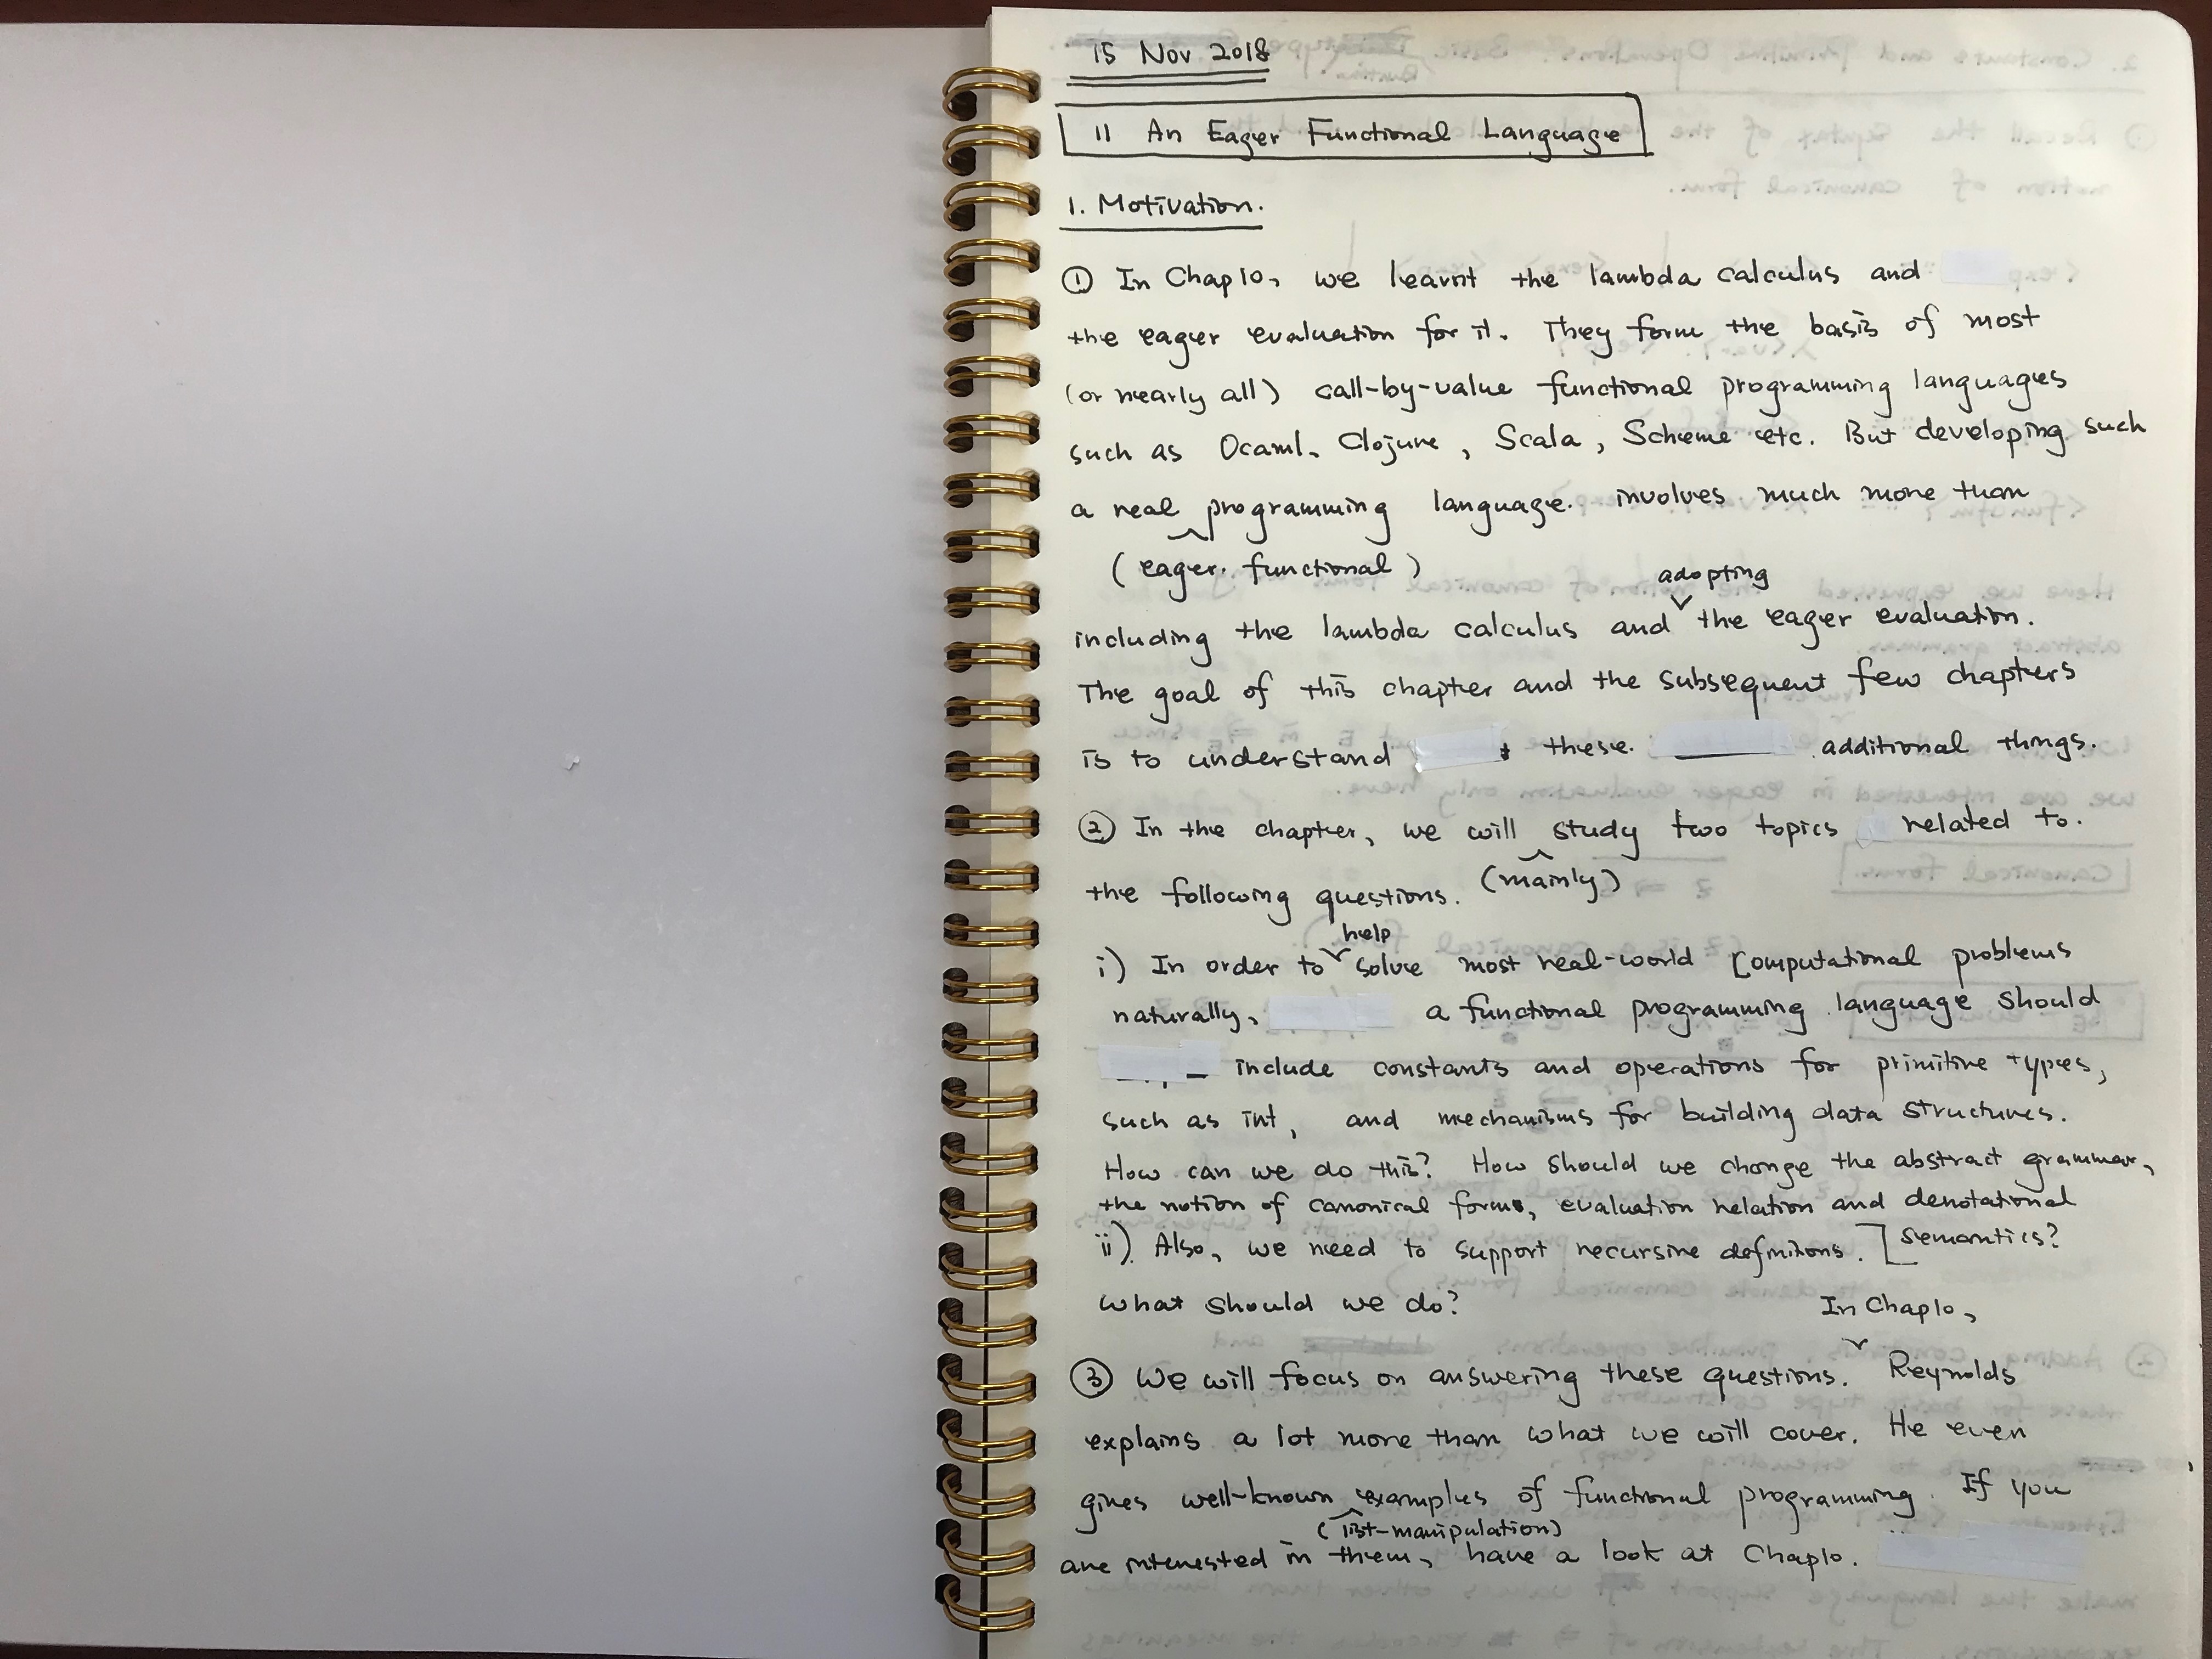 15 Nov 2018
11 An Eager Functional Language
1. Motivation.
① In Chap10, we learnt the lambda calculus and
the eager evaluation for it. They form the basis of most
(or nearly all) call-by-value functional programming languages
such as Ocaml, Clojure, Scala, Scheme etc. But developing such
a real programming language. involves much more than
(eager. functional)
adopting
including the lambda calculus and the eager evaluation.
The goal of this chapter and the subsequent few chapters
is to understand these. additional things.
② In the chapter, we will study two topics related to.
(mainly)
the following questions.
help
i) In order to solve most real-world computational problems
naturally, a functional programming language should
include constants and operations for primitive types,
such as int, and mechanisms for building data structures.
How can we do this? How should we change the abstract grammar,
the notion of canonical forms, evaluation relation and denotational
semantics?
ii) Also, we need to support recursive definitions.
What should we do?
In Chap10,
③ We will focus on answering these questions. Reynolds
explains a lot more than what we will cover. He even
gives well-known examples of functional programming. If you
(list-manipulation)
are interested in them, have a look at Chap10.